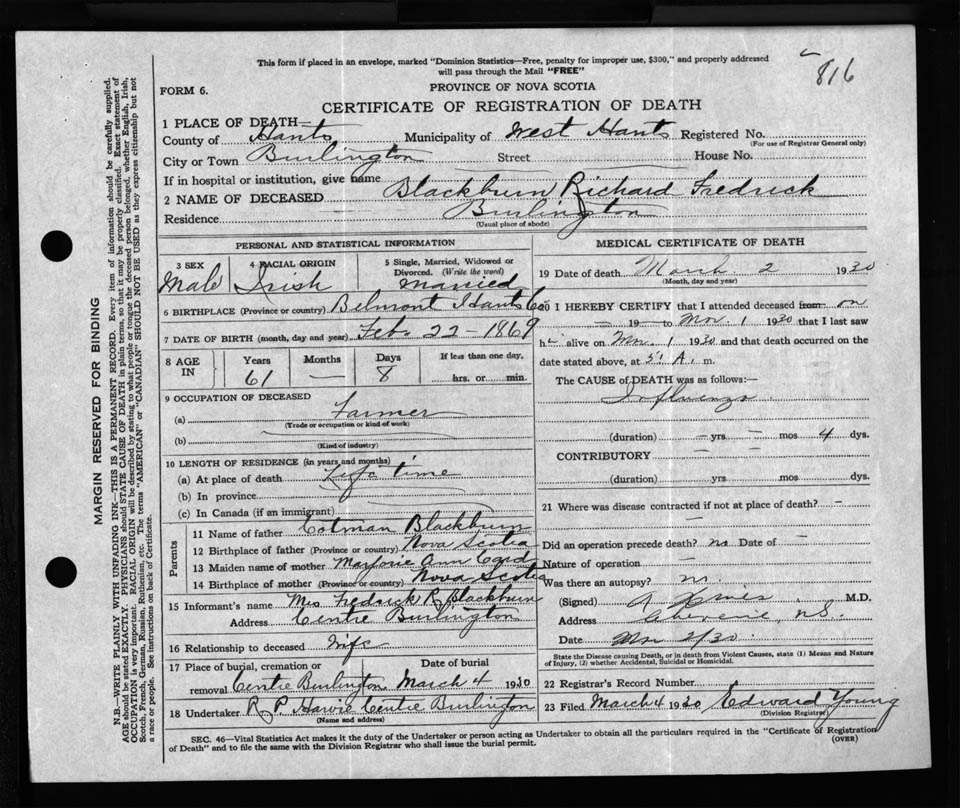 This form if placed in an envelope, marked "Dominion Statistics—Free, penalty for improper use, $300," and properly addressed
will pass through the Mail "FREE"
816
FORM 6.
PROVINCE OF NOVA SCOTIA
CERTIFICATE OF REGISTRATION OF DEATH
1 PLACE OF DEATH—
County of Hants Municipality of West Hants Registered No.
(For use of Registrar General only)
City or Town Burlington Street House No.
If in hospital or institution, give name
2 NAME OF DECEASED Blackburn Richard Fredrick
Residence Burlington
(Usual place of abode)
PERSONAL AND STATISTICAL INFORMATION
3 SEX 4 RACIAL ORIGIN 5 Single, Married, Widowed or
Divorced. (Write the word)
Male Irish Married
6 BIRTHPLACE (Province or country) Belmont Hants Co
7 DATE OF BIRTH (month, day and year) Feb. 22-1869
8 AGE IN Years Months Days If less than one day,
61 — 8 hrs. or min.
9 OCCUPATION OF DECEASED
(a) Farmer
(Trade or occupation or kind of work)
(b)
(Kind of industry)
10 LENGTH OF RESIDENCE (in years and months)
(a) At place of death Life time
(b) In province
(c) In Canada (if an immigrant)
Parents
11 Name of father Cotman Blackburn
12 Birthplace of father (Province or country) Nova Scotia
13 Maiden name of mother Marjorie Ann Card
14 Birthplace of mother (Province or country) Nova Scotia
15 Informant's name Mrs Fredrick R Blackburn
Address Centre Burlington
16 Relationship to deceased Wife
17 Place of burial, cremation or Date of burial
removal Centre Burlington March 4 1930
18 Undertaker R P Harvie Centre Burlington
(Name and address)
MEDICAL CERTIFICATE OF DEATH
19 Date of death March 2 1930
(Month, day and year)
20 I HEREBY CERTIFY that I attended deceased from on
— 19 — to Mar 1 1930 that I last saw
h alive on Mar 1 1930 and that death occurred on the
date stated above, at 5 A. m.
The CAUSE of DEATH was as follows:—
Influenza
(duration) — yrs — mos 4 dys.
CONTRIBUTORY —
(duration) yrs mos dys.
21 Where was disease contracted if not at place of death? —
Did an operation precede death? no Date of —
Nature of operation —
Was there an autopsy? no
(Signed) M.D.
Address Cheverie, N.S.
Date Mar 2/30
State the Disease causing Death, or in death from Violent Causes, state (1) Means and Nature
of Injury, (2) whether Accidental, Suicidal or Homicidal.
22 Registrar's Record Number
23 Filed March 4 1930 Edward Young
(Division Registrar)
SEC. 46—Vital Statistics Act makes it the duty of the Undertaker or person acting as Undertaker to obtain all the particulars required in the "Certificate of Registration
of Death" and to file the same with the Division Registrar who shall issue the burial permit.
(OVER)
MARGIN RESERVED FOR BINDING
N.B.—WRITE PLAINLY WITH UNFADING INK—THIS IS A PERMANENT RECORD. Every item of information should be carefully supplied.
AGE should be stated EXACTLY. PHYSICIANS should STATE CAUSE OF DEATH in plain terms, so that it may be properly classified. Exact statement of
OCCUPATION is very important. RACIAL ORIGIN will be described by stating to what people or tongue the deceased person belonged, whether English, Irish,
Scotch, French, German, Russian, Ruthenian, etc. The terms "AMERICAN" or "CANADIAN" SHOULD NOT BE USED as they express citizenship but not
a race or people. See instructions on back of Certificate.